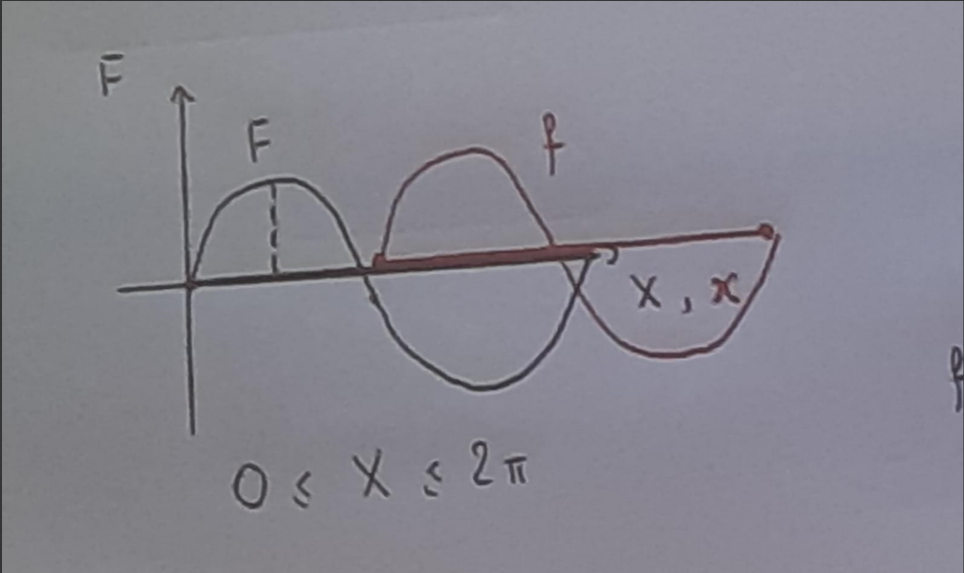 F̄
F
f
X, x
0 ≤ X ≤ 2π
f